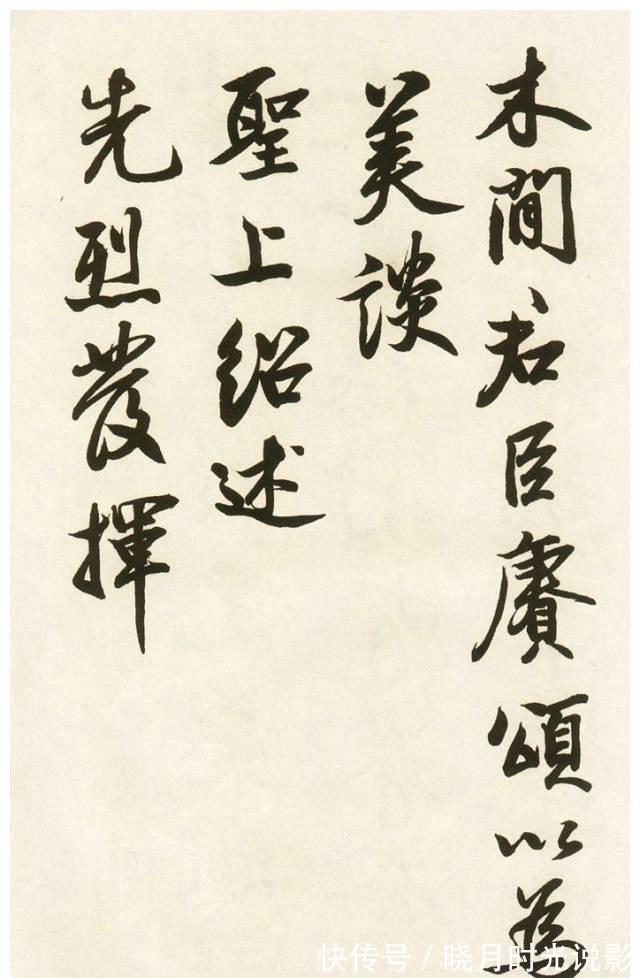 木間君臣賡頌以為
美談
聖上紹述
先烈發揮
快传号/晓月时光说影